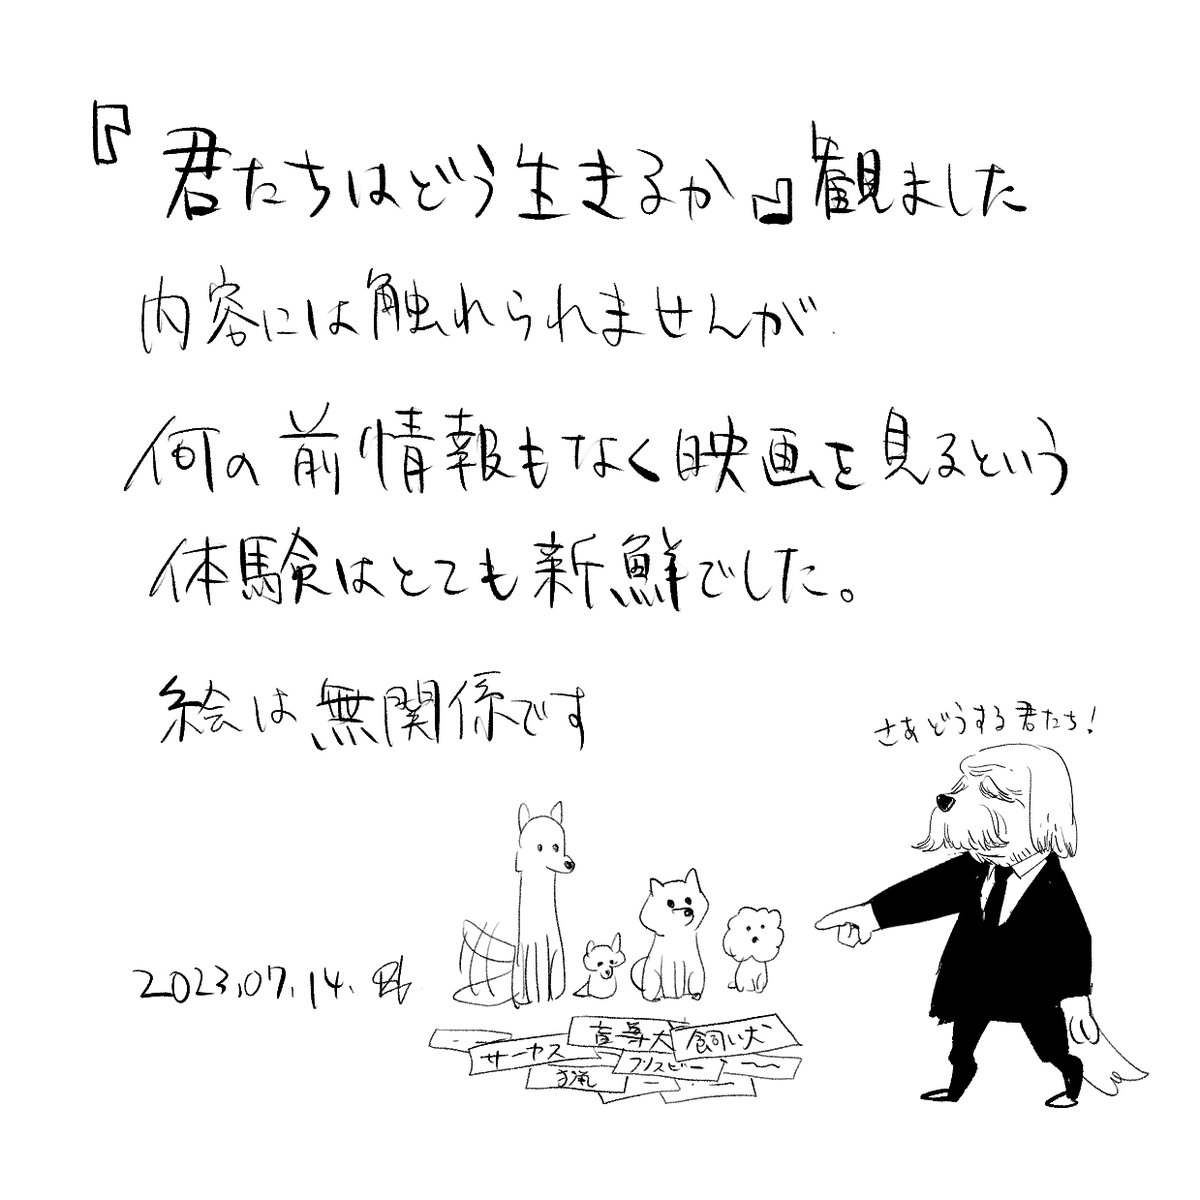 『君たちはどう生きるか』観ました
内容には触れられませんが
何の前情報もなく映画を見るという
体験はとても新鮮でした。
絵は無関係です
さあどうする君たち!
2023.07.14.
サーカス
盲導犬
飼い犬
フリスビー
猟